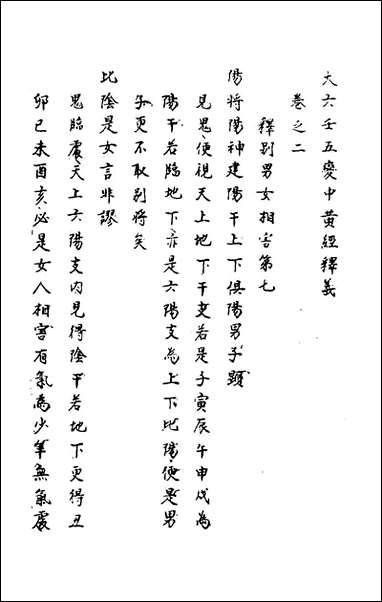 大六壬五變中黃經釋義
卷之二
釋別男女相害第七
陽將陽神建陽干上下俱陽男子顯
見鬼便視天上地下干支若是子寅辰午申戌為
陽干若臨地下亦是六陽支為上下比陽便是男
子更不取別將矣
比陰是女言非謬
鬼臨處天上六陽支內見得陰干若地下更得丑
卯巳未酉亥必是女人相害有氣為少年無氣處